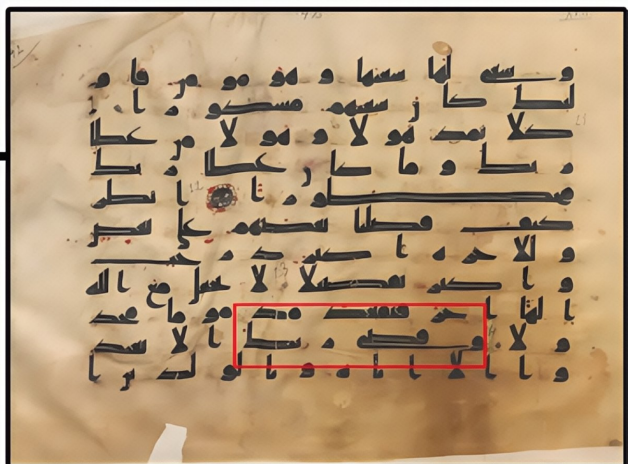 وسعى لها سعيها وهو مومن فاو
لىك كا ن سعيهم مشكورا
كلا نمد هولا وهولا من عطا
ربك وما كا ن عطا ربك
محظورا ا نظر
كيف فضلنا بعضهم على بعض
وللاخره ا كبر درجت
وا كبر تفضيلا لا تجعل مع الله
ا لها ا خر فتقعد مذموما مخذ
ولا وقضى ربك ا لا تعبد
وا ا لا ا يا ه وبا لولدين ا